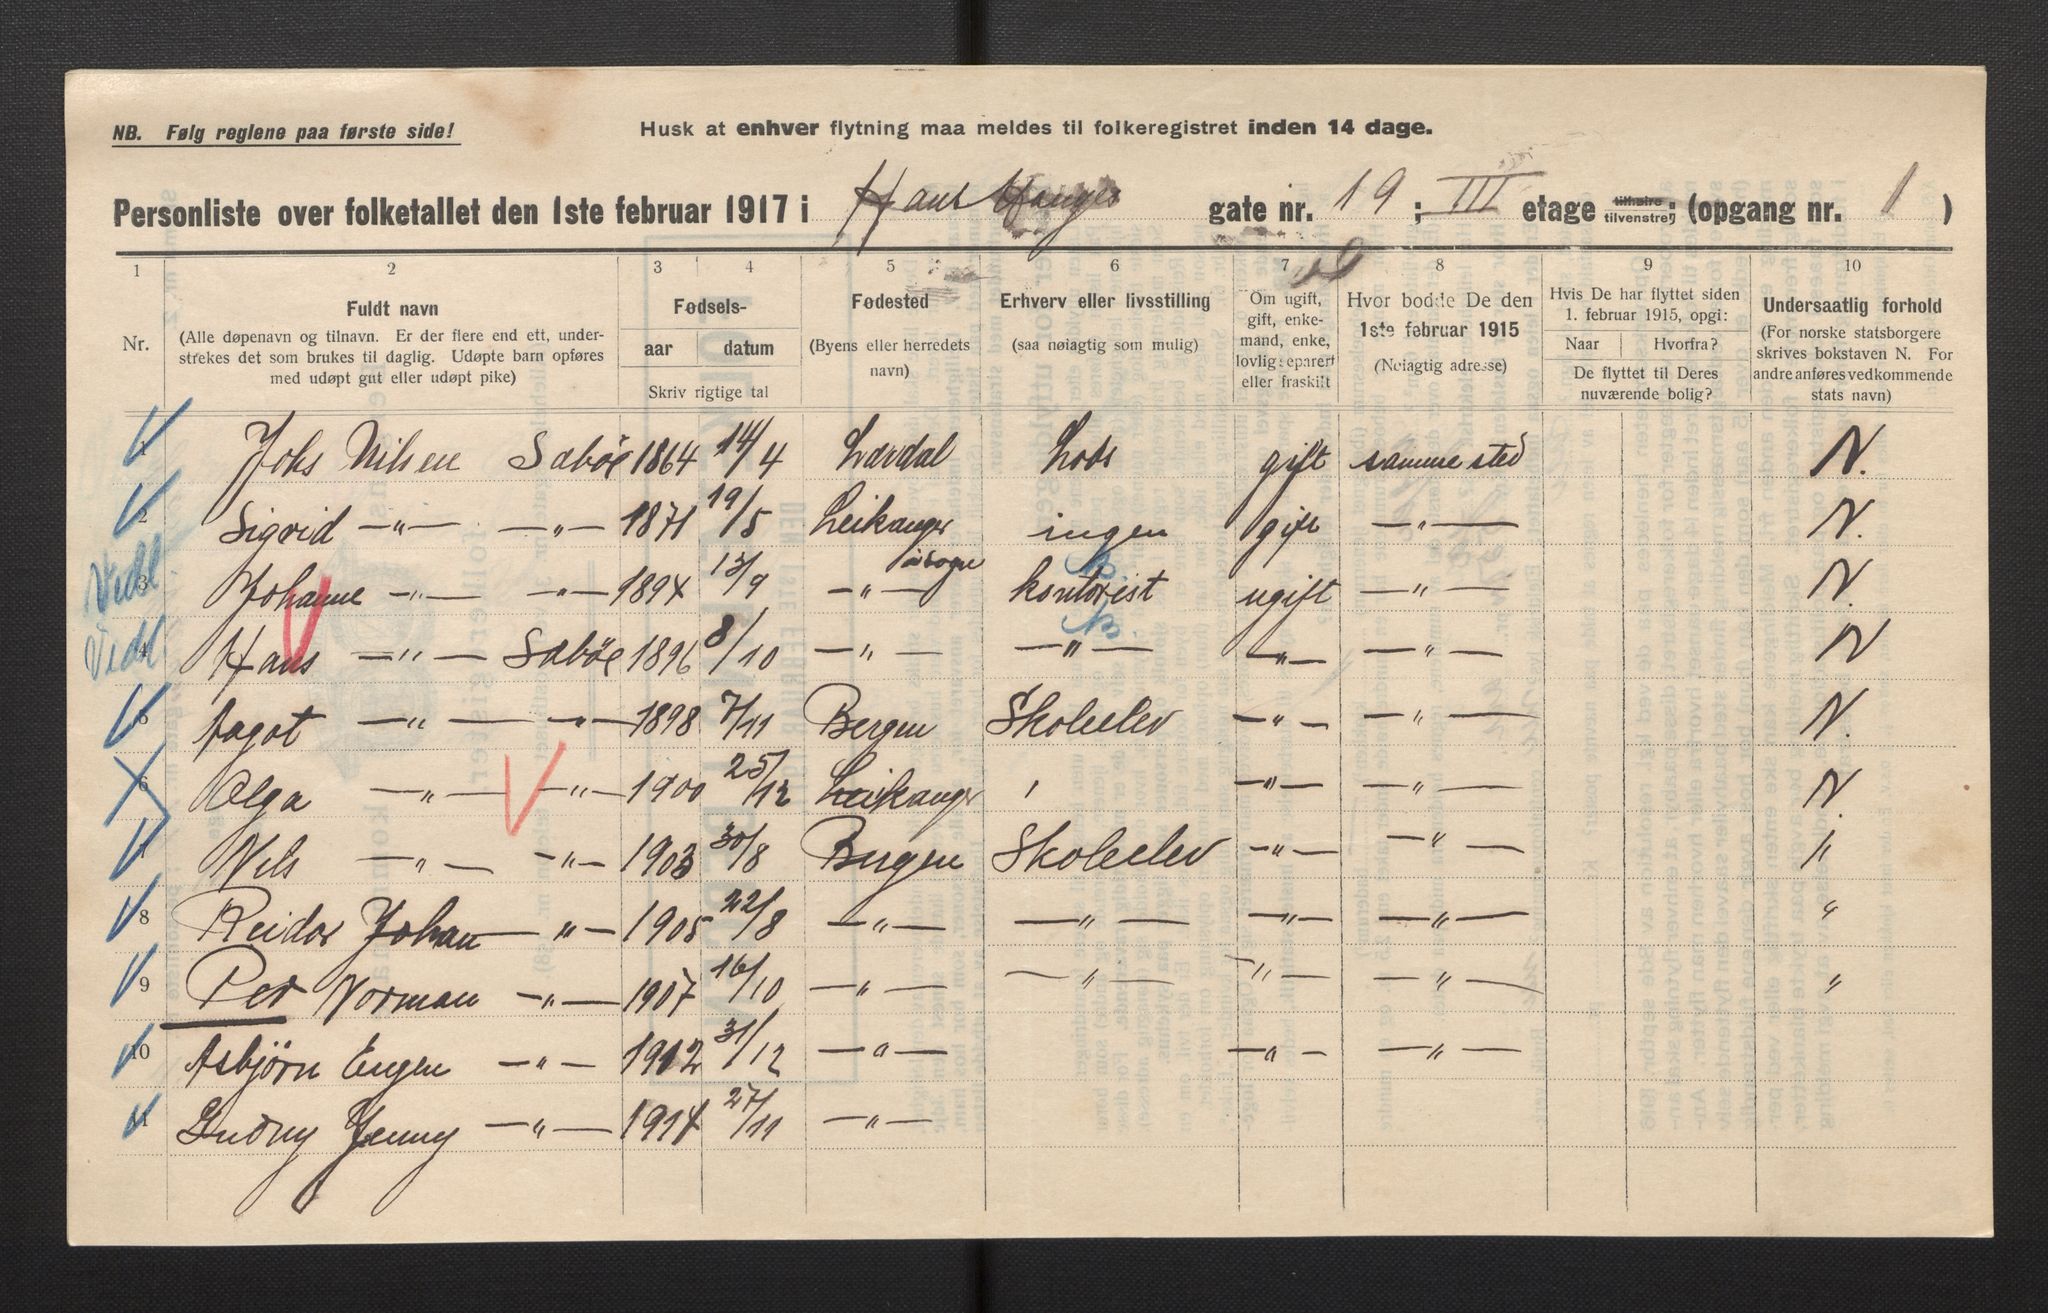 NB. Følg reglene paa første side!
Husk at enhver flytning maa meldes til folkeregistret inden 14 dage.
Personliste over folketallet den 1ste februar 1917 i Hans Hauges gate nr. 19 ; III etage tilhøire tilvenstre; (opgang nr. 1 )
1 2 3 4 5 6 7 8 9 10
Nr. Fuldt navn (Alle døpenavn og tilnavn. Er der flere end ett, understrekes det som brukes til daglig. Udøpte barn opføres med udøpt gut eller udøpt pike) Fødsels- aar datum Skriv rigtige tal Fødested (Byens eller herredets navn) Erhverv eller livsstilling (saa nøiagtig som mulig) Om ugift, gift, enkemand, enke, lovlig separert eller fraskilt Hvor bodde De den 1ste februar 1915 (Nøiagtig adresse) Hvis De har flyttet siden 1. februar 1915, opgi: Naar Hvorfra? De flyttet til Deres nuværende bolig? Undersaatlig forhold (For norske statsborgere skrives bokstaven N. For andre anføres vedkommende stats navn)
1 Johs Nilsen Sabøe 1864 14/4 Lærdal Lods gift samme sted N.
2 Sigrid —"— —"— 1871 19/5 Leikanger ingen gift —"— N.
Vedl 3 Johanne —"— —"— 1894 13/9 —"— kontorist ugift —"— N.
Vedl 4 Hans —"— Sabøe 1896 8/10 —"— —"— —"— —"— N
5 Aagot —"— —"— 1898 7/11 Bergen Skoleelev —"— —"— N.
6 Olga —"— —"— 1900 25/12 Leikanger —"— —"— N.
7 Nils —"— —"— 1903 30/8 Bergen Skoleelev —"— —"— "
8 Reidar Johan —"— 1905 22/8 —"— —"— —"— —"— "
9 Per Norman —"— 1907 16/10 —"— —"— —"— —"— "
10 Asbjörn Eugen —"— 1912 31/12 —"— —"— —"—
11 Gudny Jenny —"— 1914 27/11 —"—